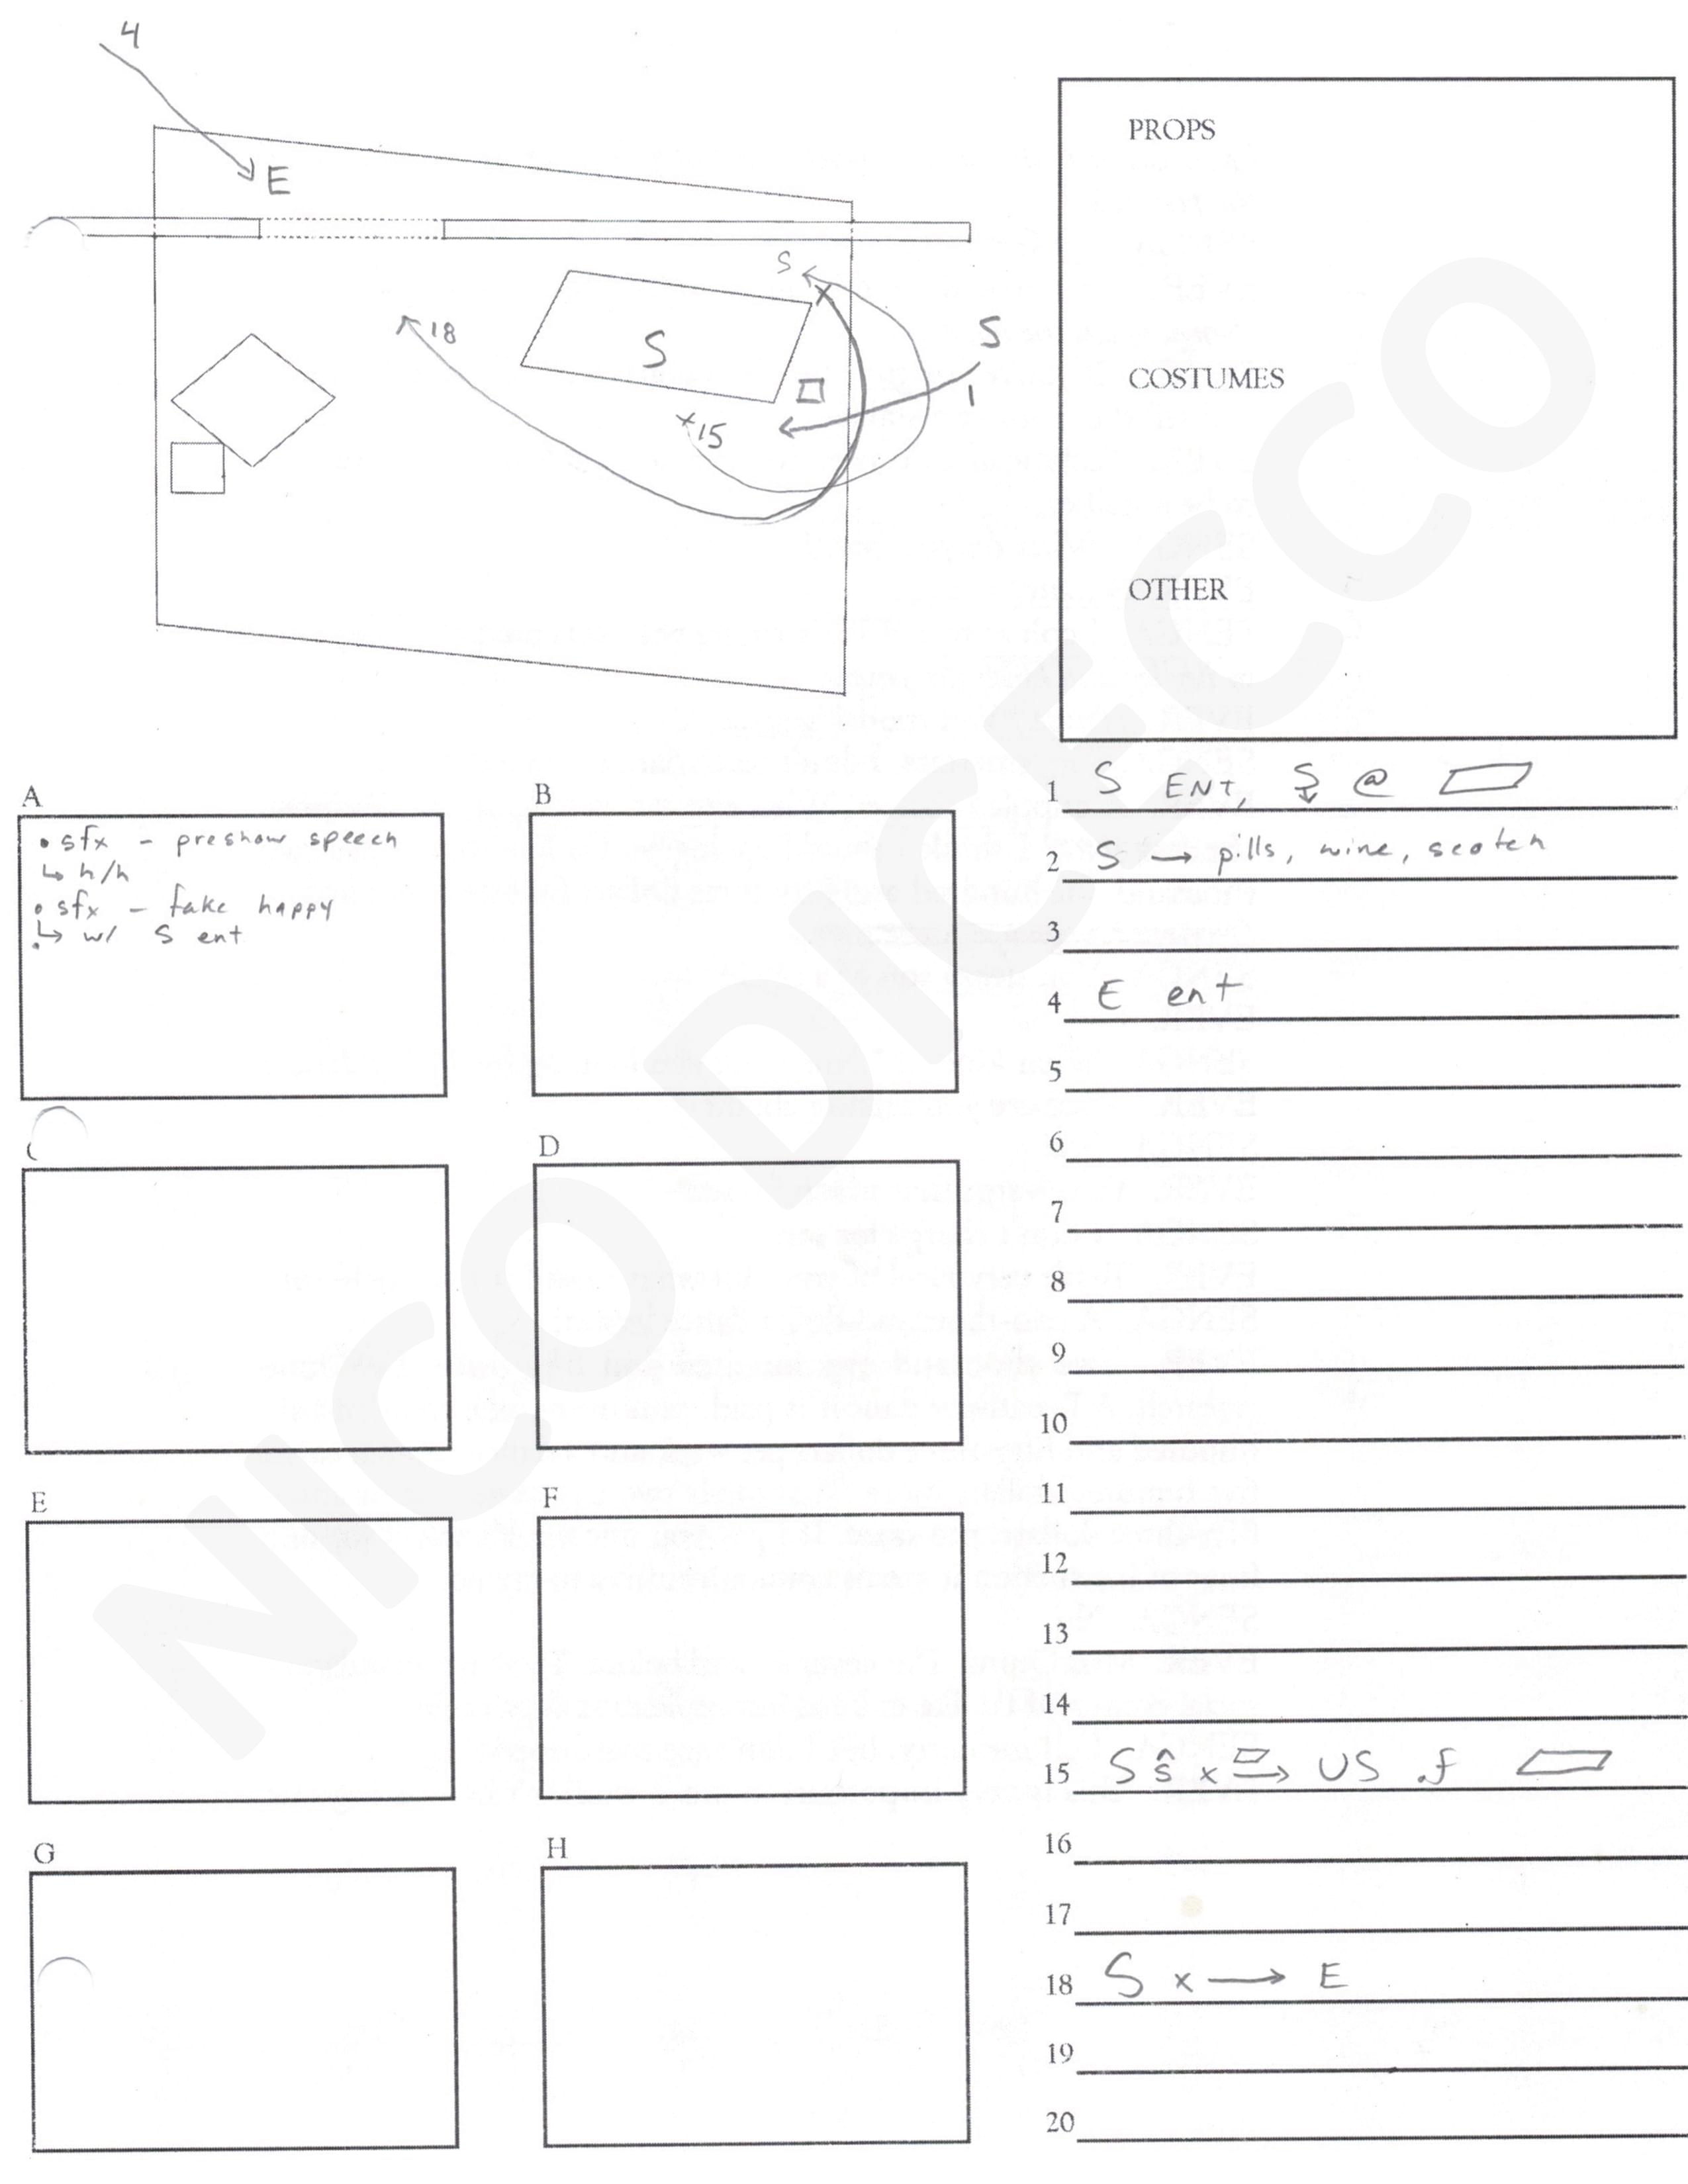 4
E
S
S
S
1
18
15
PROPS
COSTUMES
OTHER
A
• sfx - preshow speech
↳ h/h
• sfx - fake happy
↳ w/ S ent
B
C
D
E
F
G
H
1 S ENt, S @
2 S → pills, wine, scotch
3
4 E ent
5
6
7
8
9
10
11
12
13
14
15 S ŝ x → US .f
16
17
18 S x → E
19
20
NICO DICECCO